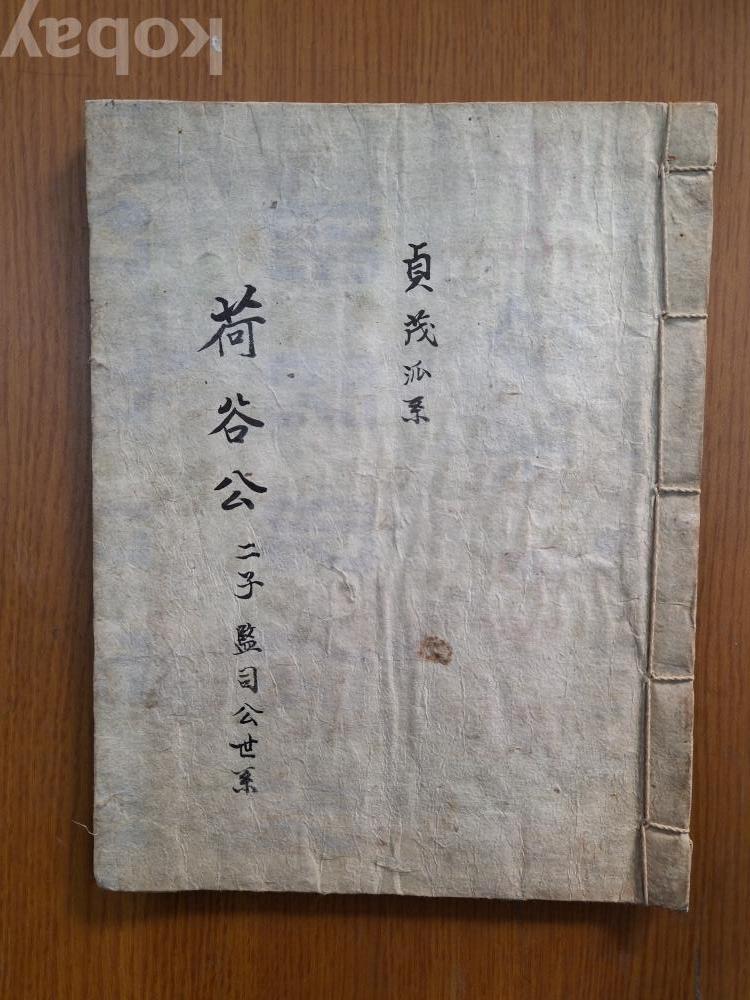 kobay
貞茂派系
荷谷公 二子 監司公世系